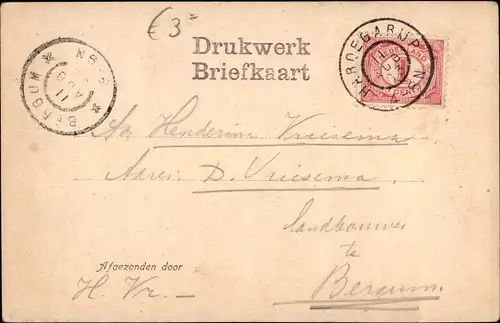 € 3=
Drukwerk
Briefkaart
HARDEGARIJP
NEDERLAND
BERGUM
11
AUG
Aa Henderina Vriesema
Adres: D. Vriesema
Landbouwer
te
Bergum.
Afgezonden door
H. Vr.—